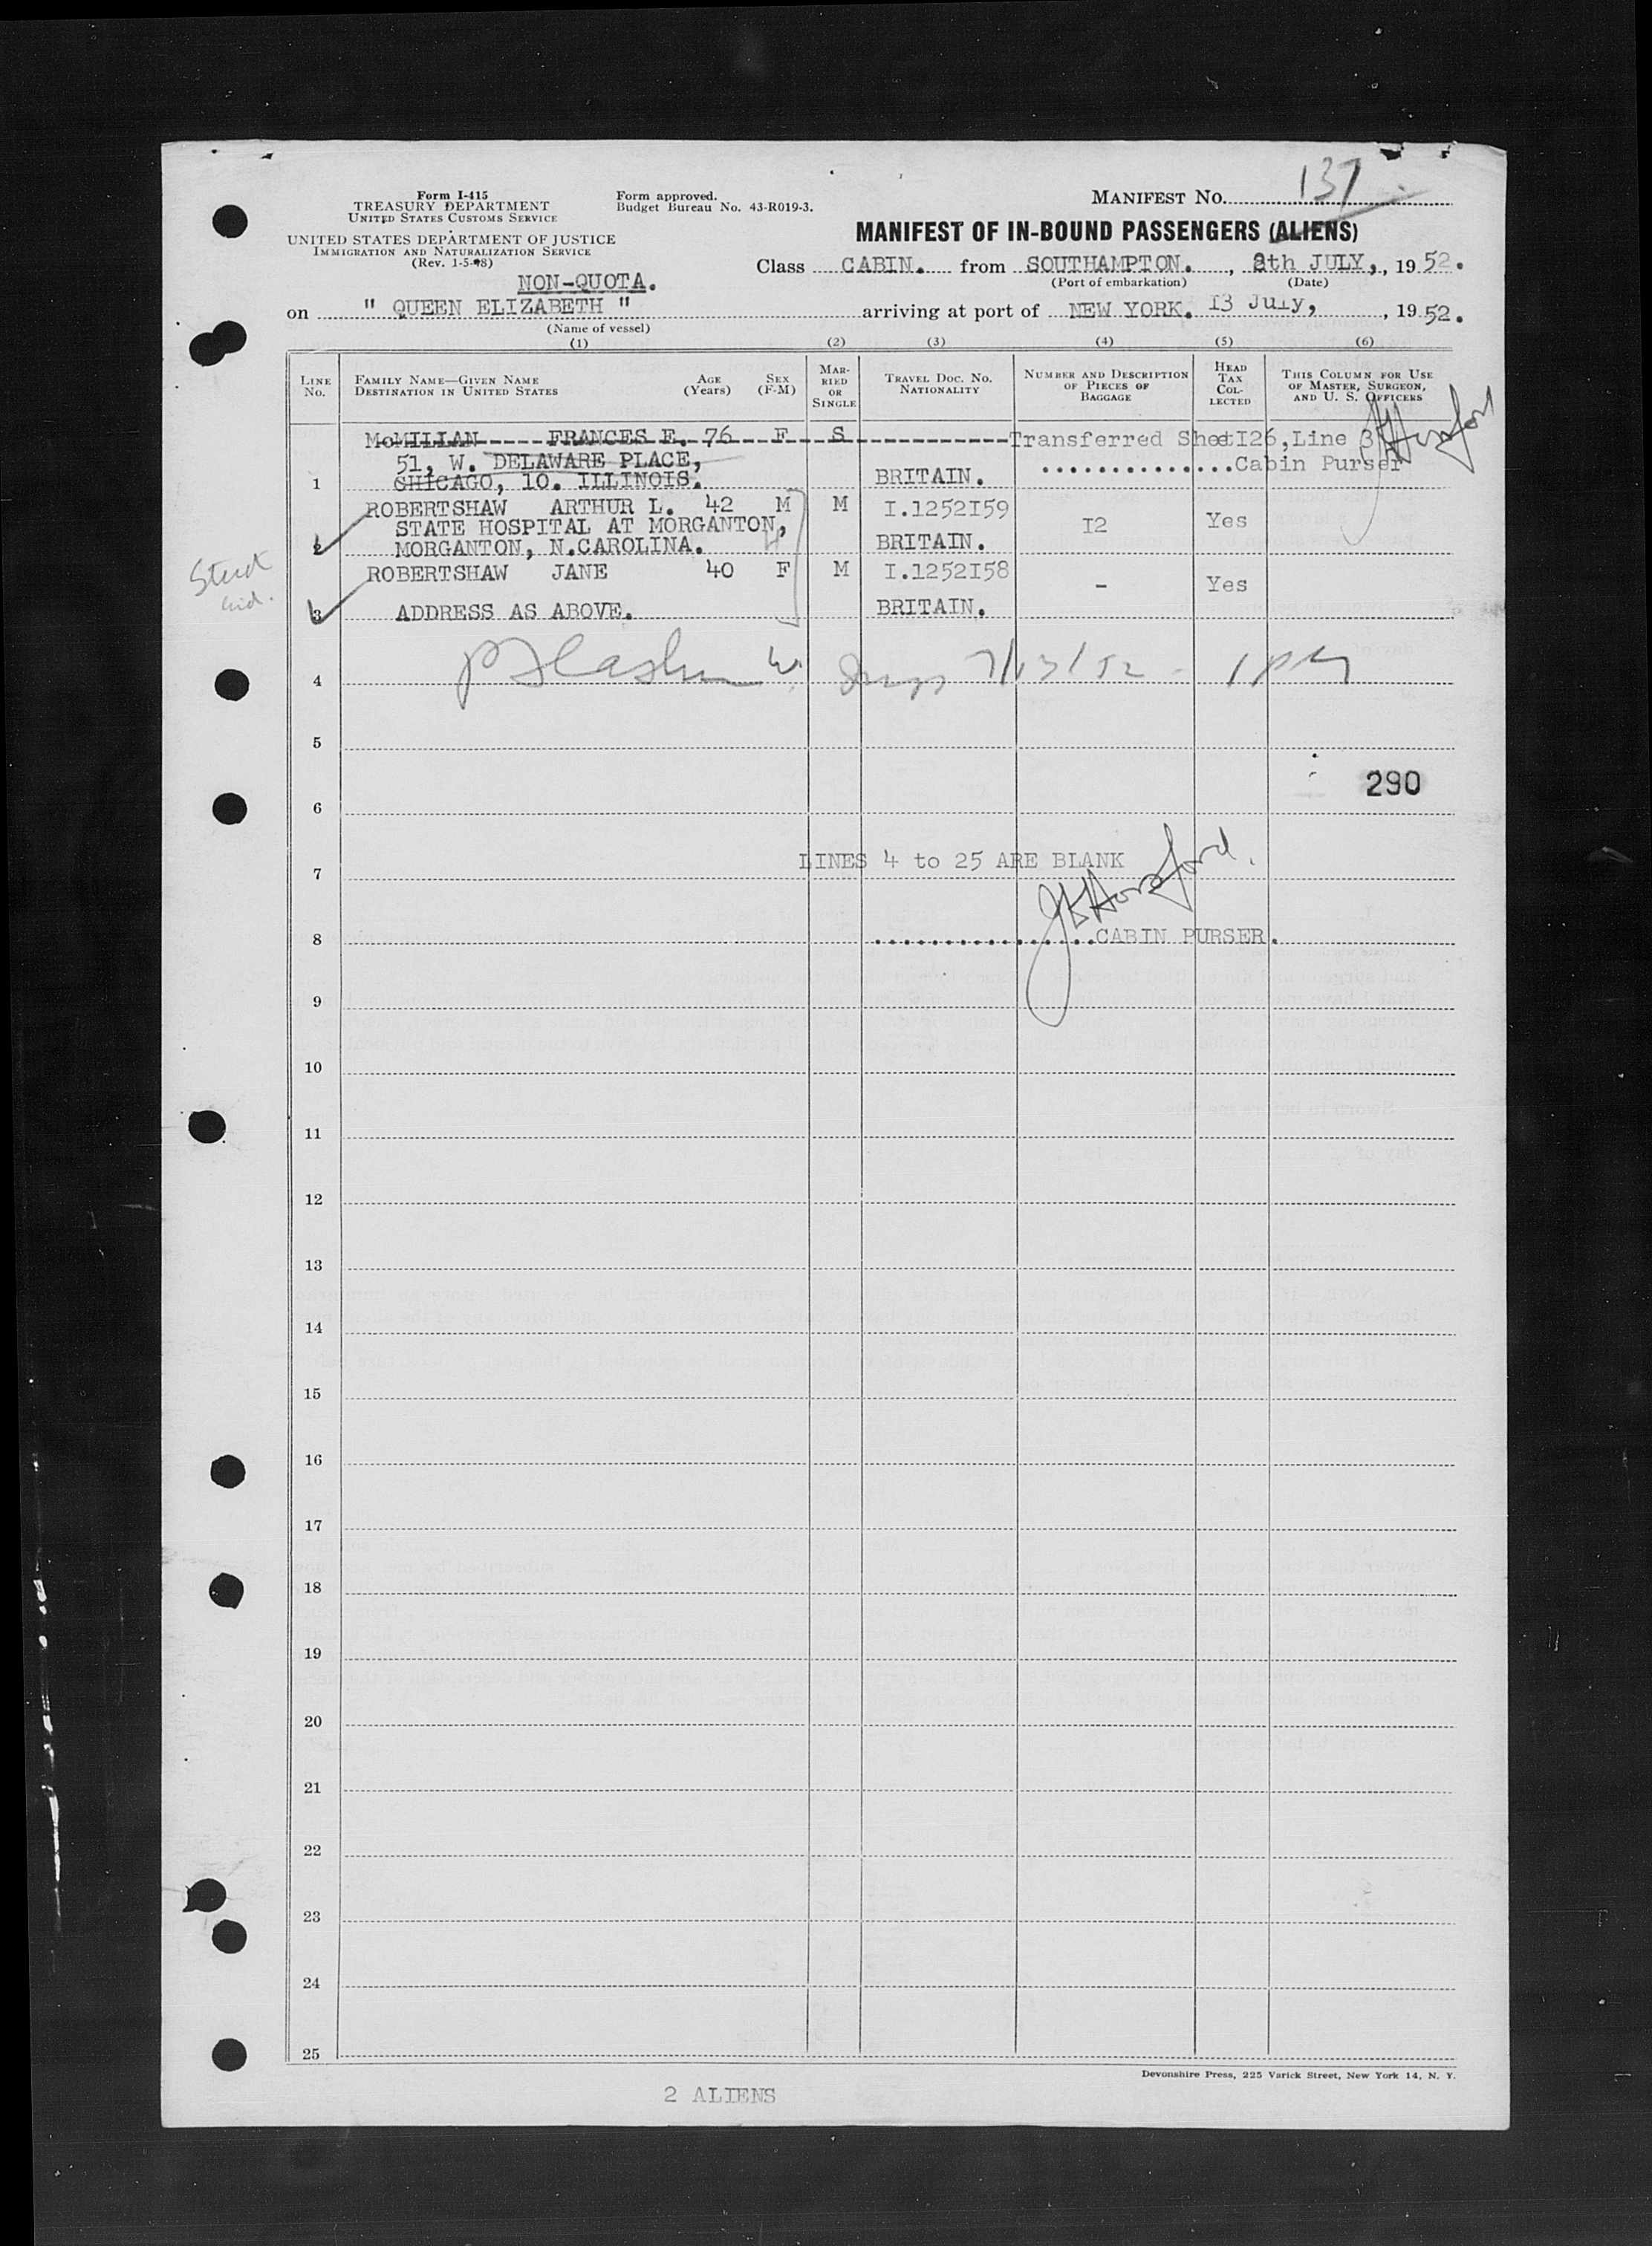 Form I-415
TREASURY DEPARTMENT
UNITED STATES CUSTOMS SERVICE
UNITED STATES DEPARTMENT OF JUSTICE
IMMIGRATION AND NATURALIZATION SERVICE
(Rev. 1-5-48)
Form approved.
Budget Bureau No. 43-R019-3.
MANIFEST NO. 137
MANIFEST OF IN-BOUND PASSENGERS (ALIENS)
Class CABIN. from SOUTHAMPTON., 8th JULY,, 1952.
(Port of embarkation) (Date)
NON-QUOTA.
on " QUEEN ELIZABETH " arriving at port of NEW YORK. I3 July, , 1952.
(Name of vessel)
(1) (2) (3) (4) (5) (6)
LINE No. FAMILY NAME—GIVEN NAME DESTINATION IN UNITED STATES AGE (Years) SEX (F-M) MARRIED OR SINGLE TRAVEL DOC. NO. NATIONALITY NUMBER AND DESCRIPTION OF PIECES OF BAGGAGE HEAD TAX COLLECTED THIS COLUMN FOR USE OF MASTER, SURGEON, AND U. S. OFFICERS
McMILLAN FRANCES E. 76 F S Transferred Sheet I26, Line 3
51, W. DELAWARE PLACE, Cabin Purser
1 CHICAGO, 10. ILLINOIS. BRITAIN.
ROBERTSHAW ARTHUR L. 42 M M I.1252I59
STATE HOSPITAL AT MORGANTON, I2 Yes
2 MORGANTON, N.CAROLINA. BRITAIN.
ROBERTSHAW JANE 40 F M I.1252I58
- Yes
3 ADDRESS AS ABOVE. BRITAIN.
4 7/13/52 - 1 PM
5
290
6
LINES 4 to 25 ARE BLANK
7
8 CABIN PURSER.
9
10
11
12
13
14
15
16
17
18
19
20
21
22
23
24
25
Devonshire Press, 225 Varick Street, New York 14, N. Y.
2 ALIENS